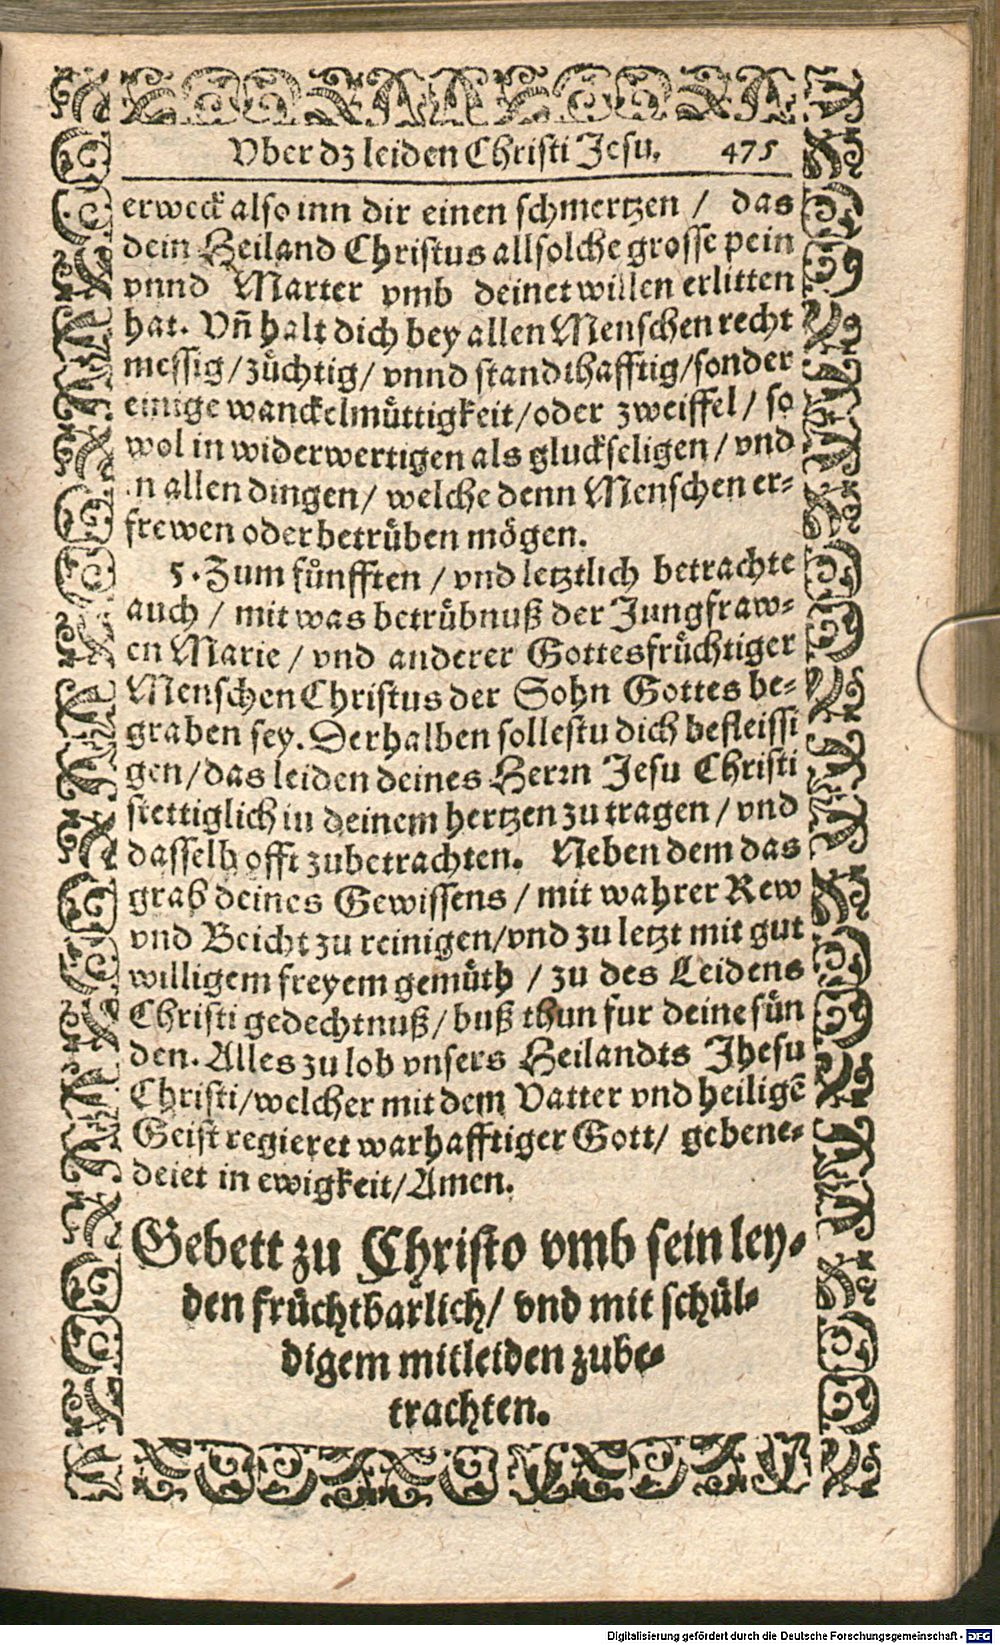 Vber dz leiden Christi Jesu. 475
erweck also inn dir einen schmertzen / das
dein Heiland Christus allsolche grosse pein
vnnd Marter vmb deinet willen erlitten
hat. Vñ halt dich bey allen Menschen recht
messig / zůchtig / vnnd standthafftig / sonder
einige wanckelmůttigkeit / oder zweiffel / so
wol in widerwertigen als gluckseligen / vnd
in allen dingen / welche denn Menschen er-
frewen oder betrůben mögen.
5. Zum fůnfften / vnd letztlich betrachte
auch / mit was betrůbnuß der Jungfraw-
en Marie / vnd anderer Gottesfrůchtiger
Menschen Christus der Sohn Gottes be-
graben sey. Derhalben sollestu dich befleissi
gen / das leiden deines Herrn Jesu Christi
stettiglich in deinem hertzen zu tragen / vnd
dasselb offt zubetrachten. Neben dem das
grab deines Gewissens / mit wahrer Rew
vnd Beicht zu reinigen / vnd zu letzt mit gut
willigem freyem gemůth / zu des Leidens
Christi gedechtnuß / buß thun fur deine sůn
den. Alles zu lob vnsers Heilandts Jhesu
Christi / welcher mit dem Vatter vnd heiligē
Geist regieret warhafftiger Gott / gebene-
deiet in ewigkeit / Amen.
Gebett zu Christo vmb sein ley-
den frůchtbarlich / vnd mit schůl-
digem mitleiden zube-
trachten.
Digitalisierung gefördert durch die Deutsche Forschungsgemeinschaft - DFG